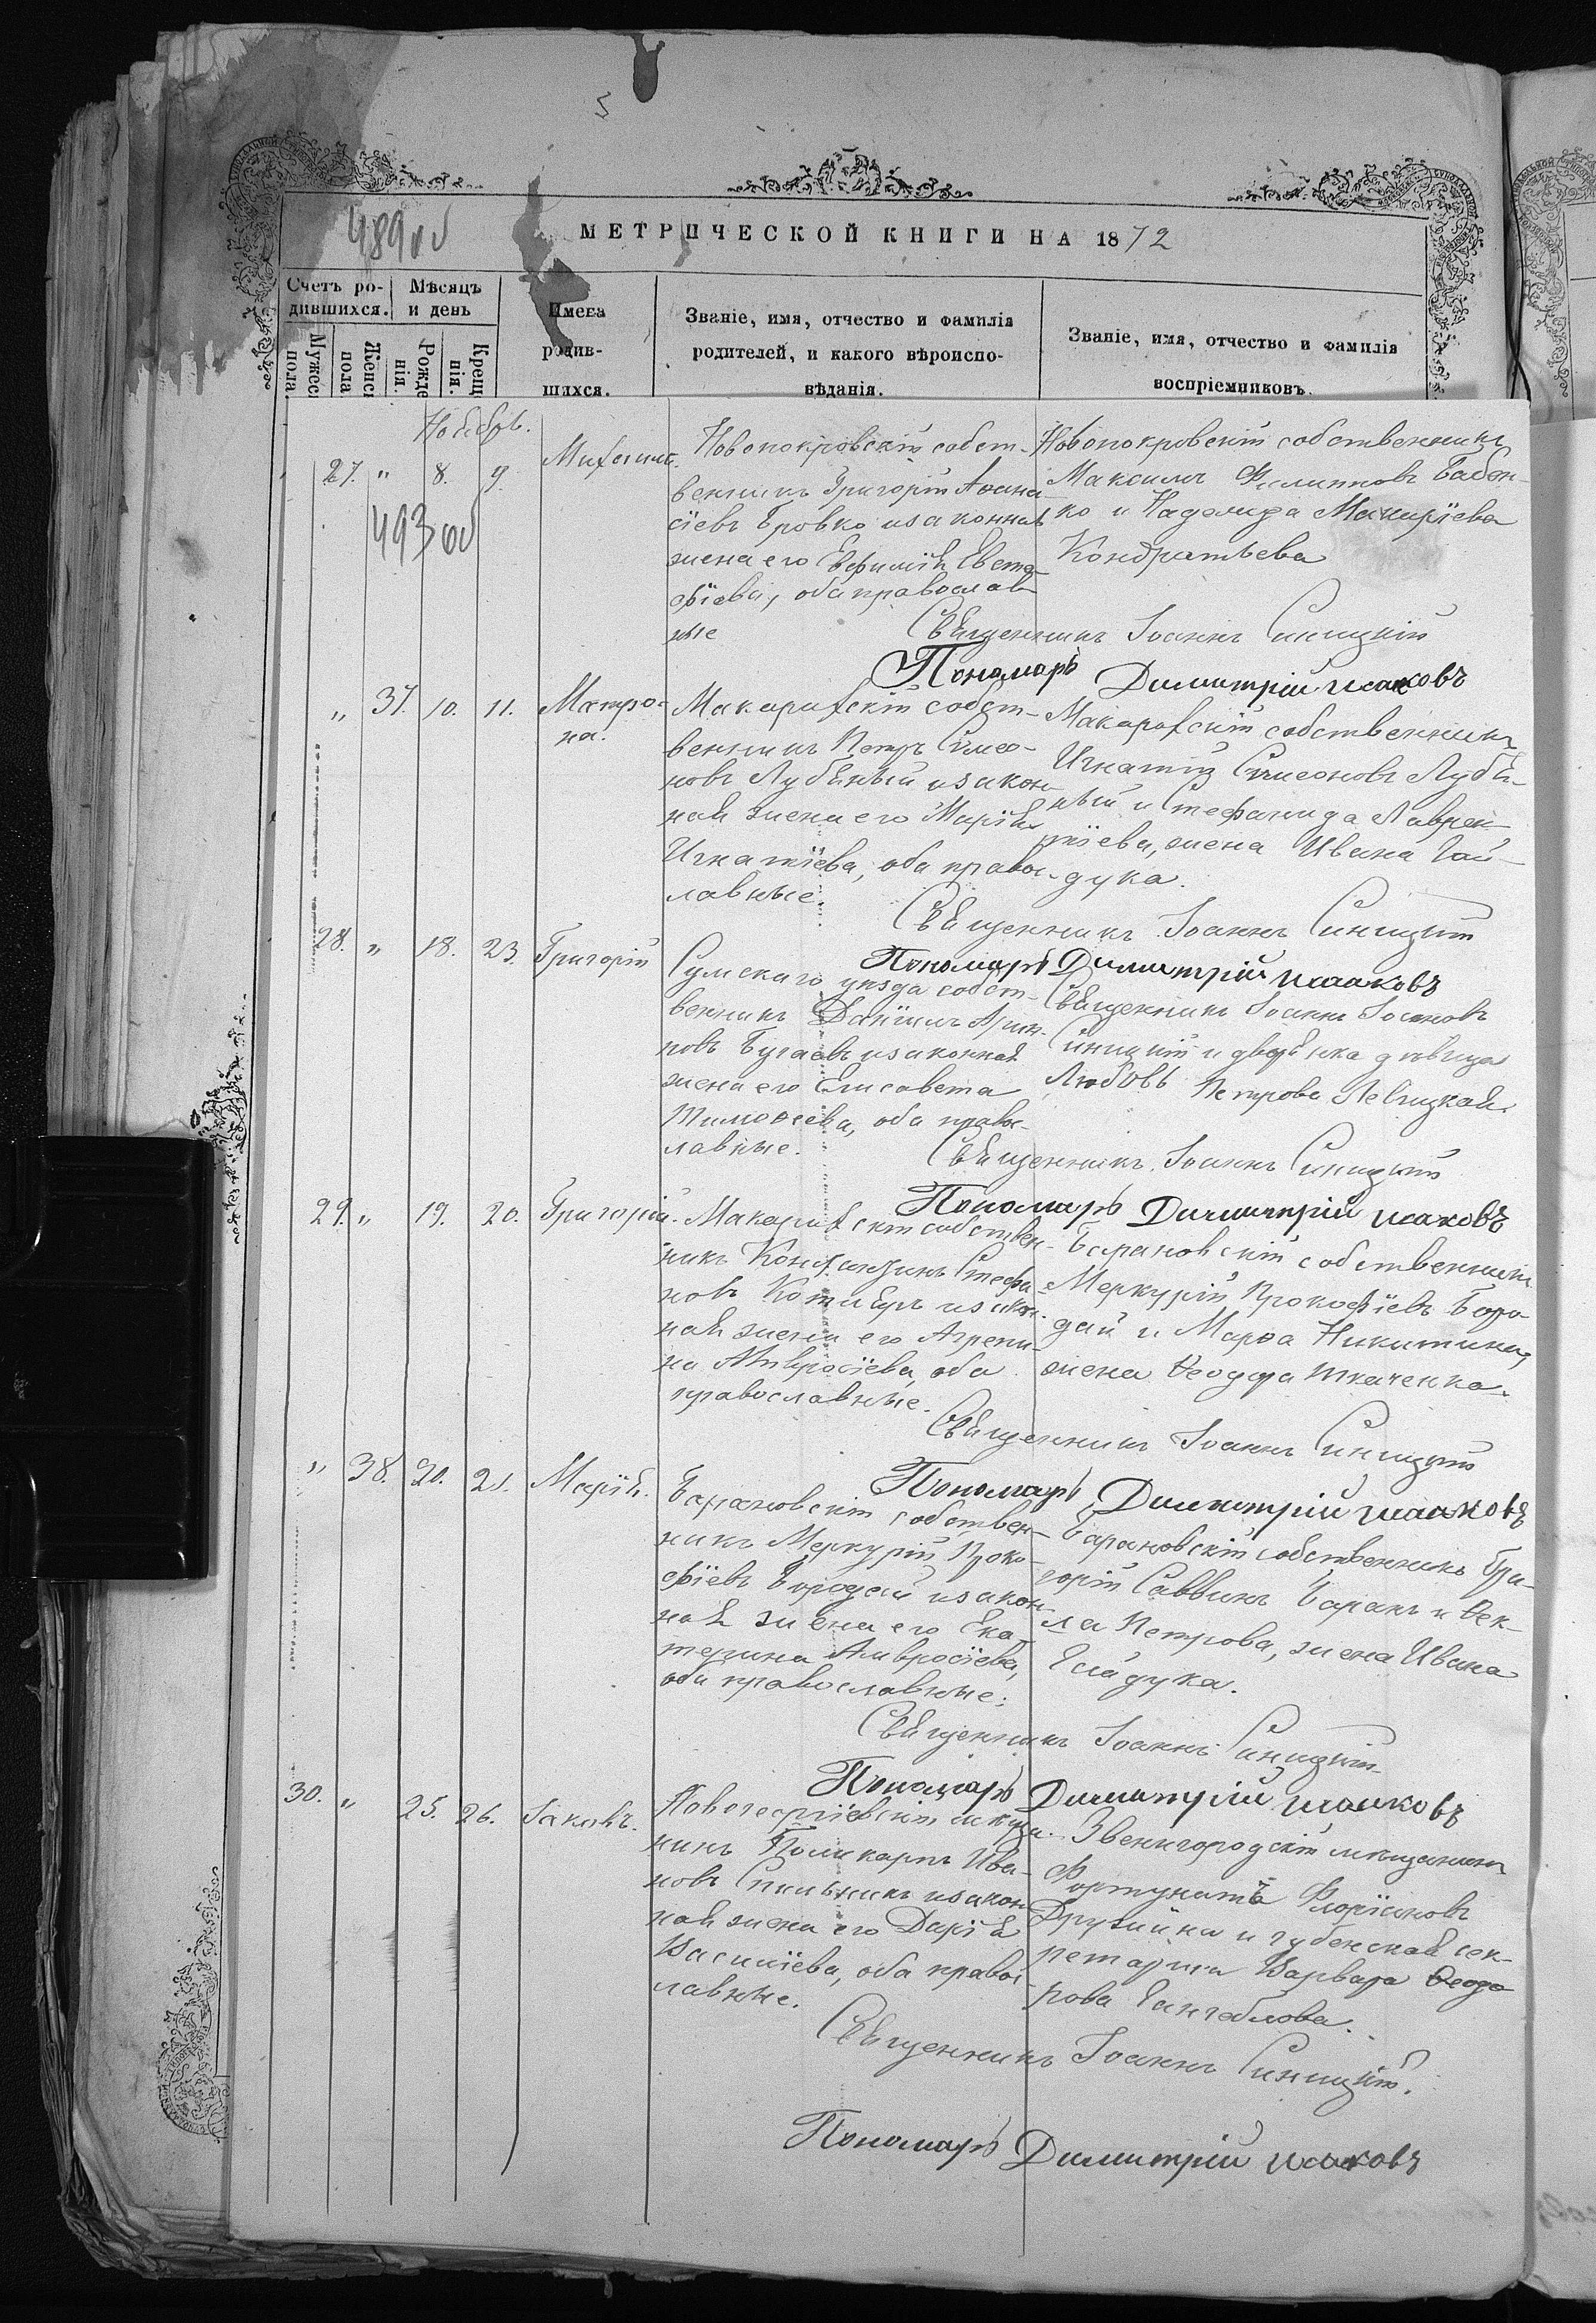 489 об
МЕТРИЧЕСКОЙ КНИГИ НА 1872
Счетъ ро-
дившихся.
Мужес.
пола.
Женск.
пола
Мѣсяцъ
и день
Рожде
нія.
Крещ
нія.
Имена
родив-
шихся.
Званіе, имя, отчество и фамилія
родителей, и какого вѣроиспо-
вѣданія.
Званіе, имя, отчество и фамилія
воспріемниковъ.
Ноябрь.
27. " 8. 9. Михаилъ.
493 об
Новопокровскій собст-
венникъ Григорій Аѳана-
сіевъ Бровко и законная
жена его Евфимія Евста-
фіева, оба православ-
ные
Новопокровскій собственникъ
Максимъ Филипповъ Бабен-
ко и Надежда Макиріева
Кондратьева
Священникъ Іоаннъ Синицкій
Пономарь Димитрій Исаковъ
" 37. 10. 11. Матро-
на.
Макарихскій собст-
венникъ Петръ Симео-
новъ Лубяный и закон-
ная жена его Марія
Игнатіева, оба правос-
лавные.
Макарихскій собственникъ
Игнатій Симеоновъ Лубя-
ный и Стефанида Лаврен-
тіева, жена Ивана Гай-
дука.
Священникъ Іоаннъ Синицкій
Пономарь Димитрій Исаковъ
28. " 18. 23. Григорій
Сумскаго уѣзда собст-
венникъ Даніилъ
новъ Бугаевъ и законная
жена его Елисавета
Тимоѳеева, оба правос-
лавные.
Священникъ Іоаннъ Іоанновъ
Синицкій и дворянка дѣвица
Любовь Петрова Левицкая.
Священникъ Іоаннъ Синицкій
Пономарь Димитрій Исаковъ
29. " 19. 20. Григорій.
Макарихскій собствен-
никъ Константинъ Стефа-
новъ Котляръ и закон-
ная жена его Агрепи-
на Амвросіева, оба
православные.
Барановскій собственникъ
Меркурій Прокофіевъ Боро-
дай и Марѳа Никитина,
жена Ѳеодора Ткаченка.
Священникъ Іоаннъ Синицкій
Пономарь Димитрій Исаковъ
" 38. 20. 21. Марія.
Барановскій собствен-
никъ Меркурій Проко-
фіевъ Бородай и закон-
ная жена его Ека-
терина Амвросіева,
оба православные.
Барановскій собственникъ Гри-
горій Саввинъ Баранъ и Ѳек-
ла Петрова, жена Ивана
Гайдука.
Священникъ Іоаннъ Синицкій
Пономарь Димитрій Исаковъ
30. " 25. 26. Іаковъ.
Новогеоргіевскій мѣща-
нинъ Поликарпъ Ива-
новъ и закон-
ная жена его Дарія
Василіева, оба правос-
лавные.
Звенигородскій мѣщанинъ
Фортунатъ Флоріановъ
и губенская сек-
ретарша Варвара Ѳеодо-
рова Гангеблова.
Священникъ Іоаннъ Синицкій.
Пономарь Димитрій Исаковъ